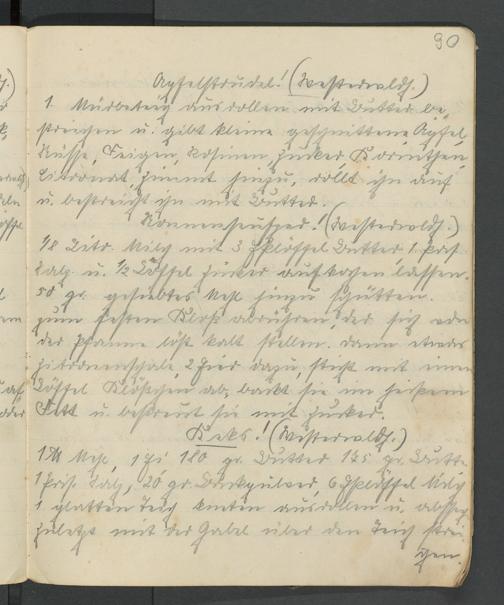 90
Apfelstrudel! (Westerwaldh.)
1 Mürbeteig ausrollen mit Butter be,
streichen u. gibt kleine geschnittene Äpfel,
Nüsse, Feigen, Rosinen, Zucker Korinthen,
Zitronat, Zimmt hinzu, rollt ihn auf
u. bestreicht ihn mit Butter.
Nonnenfürzer! (Westerwaldh.)
1/8 Liter Milch mit 3 Eßlöffel Butter, 1 Pris
Salz u. 1/2 Löffel Zucker aufkochen lassen.
50 gr. gesiebtes Mehl hinzu schütten.
zum festen Kloß abrühren, der sich von
der Pfanne löst kalt stellen. dann etwas
Zitronenschale, 2 Eier dazu, sticht mit einem
Löffel Klößchen ab, backt sie im heißem
Fett u. bestreut sie mit Zucker.
Keks! (Westerwaldh.)
1 ℔ Mehl, 1 Ei 180 gr. Zucker 175 gr. Butter
1 Pris. Salz, 20 gr. Backpulver, 6 Eßlöffel Milch
1 glatten Teig kneten ausrollen u.
zuletzt mit der Gabel über den Teich strei-
chen.